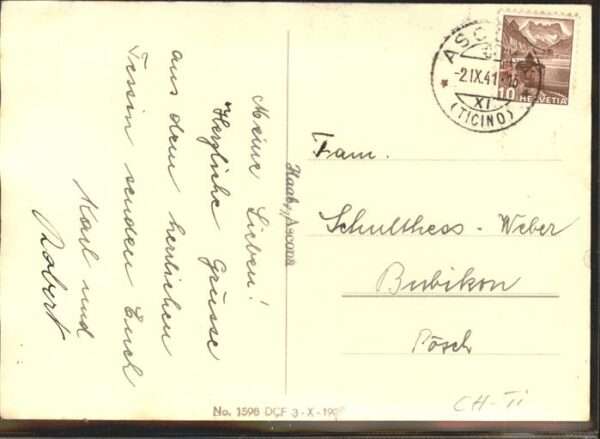 Meine Lieben!
Herzliche Grüsse
aus dem herrlichen
Tessin senden Euch
Karl und
Robert
Ascona
ASCONA
-2.IX.41
XI
(TICINO)
10 HELVETIA
Fam.
Schulthess - Weber
Bubikon
Pösch
No. 1598 DCF 3 - X - 19
CH-Ti